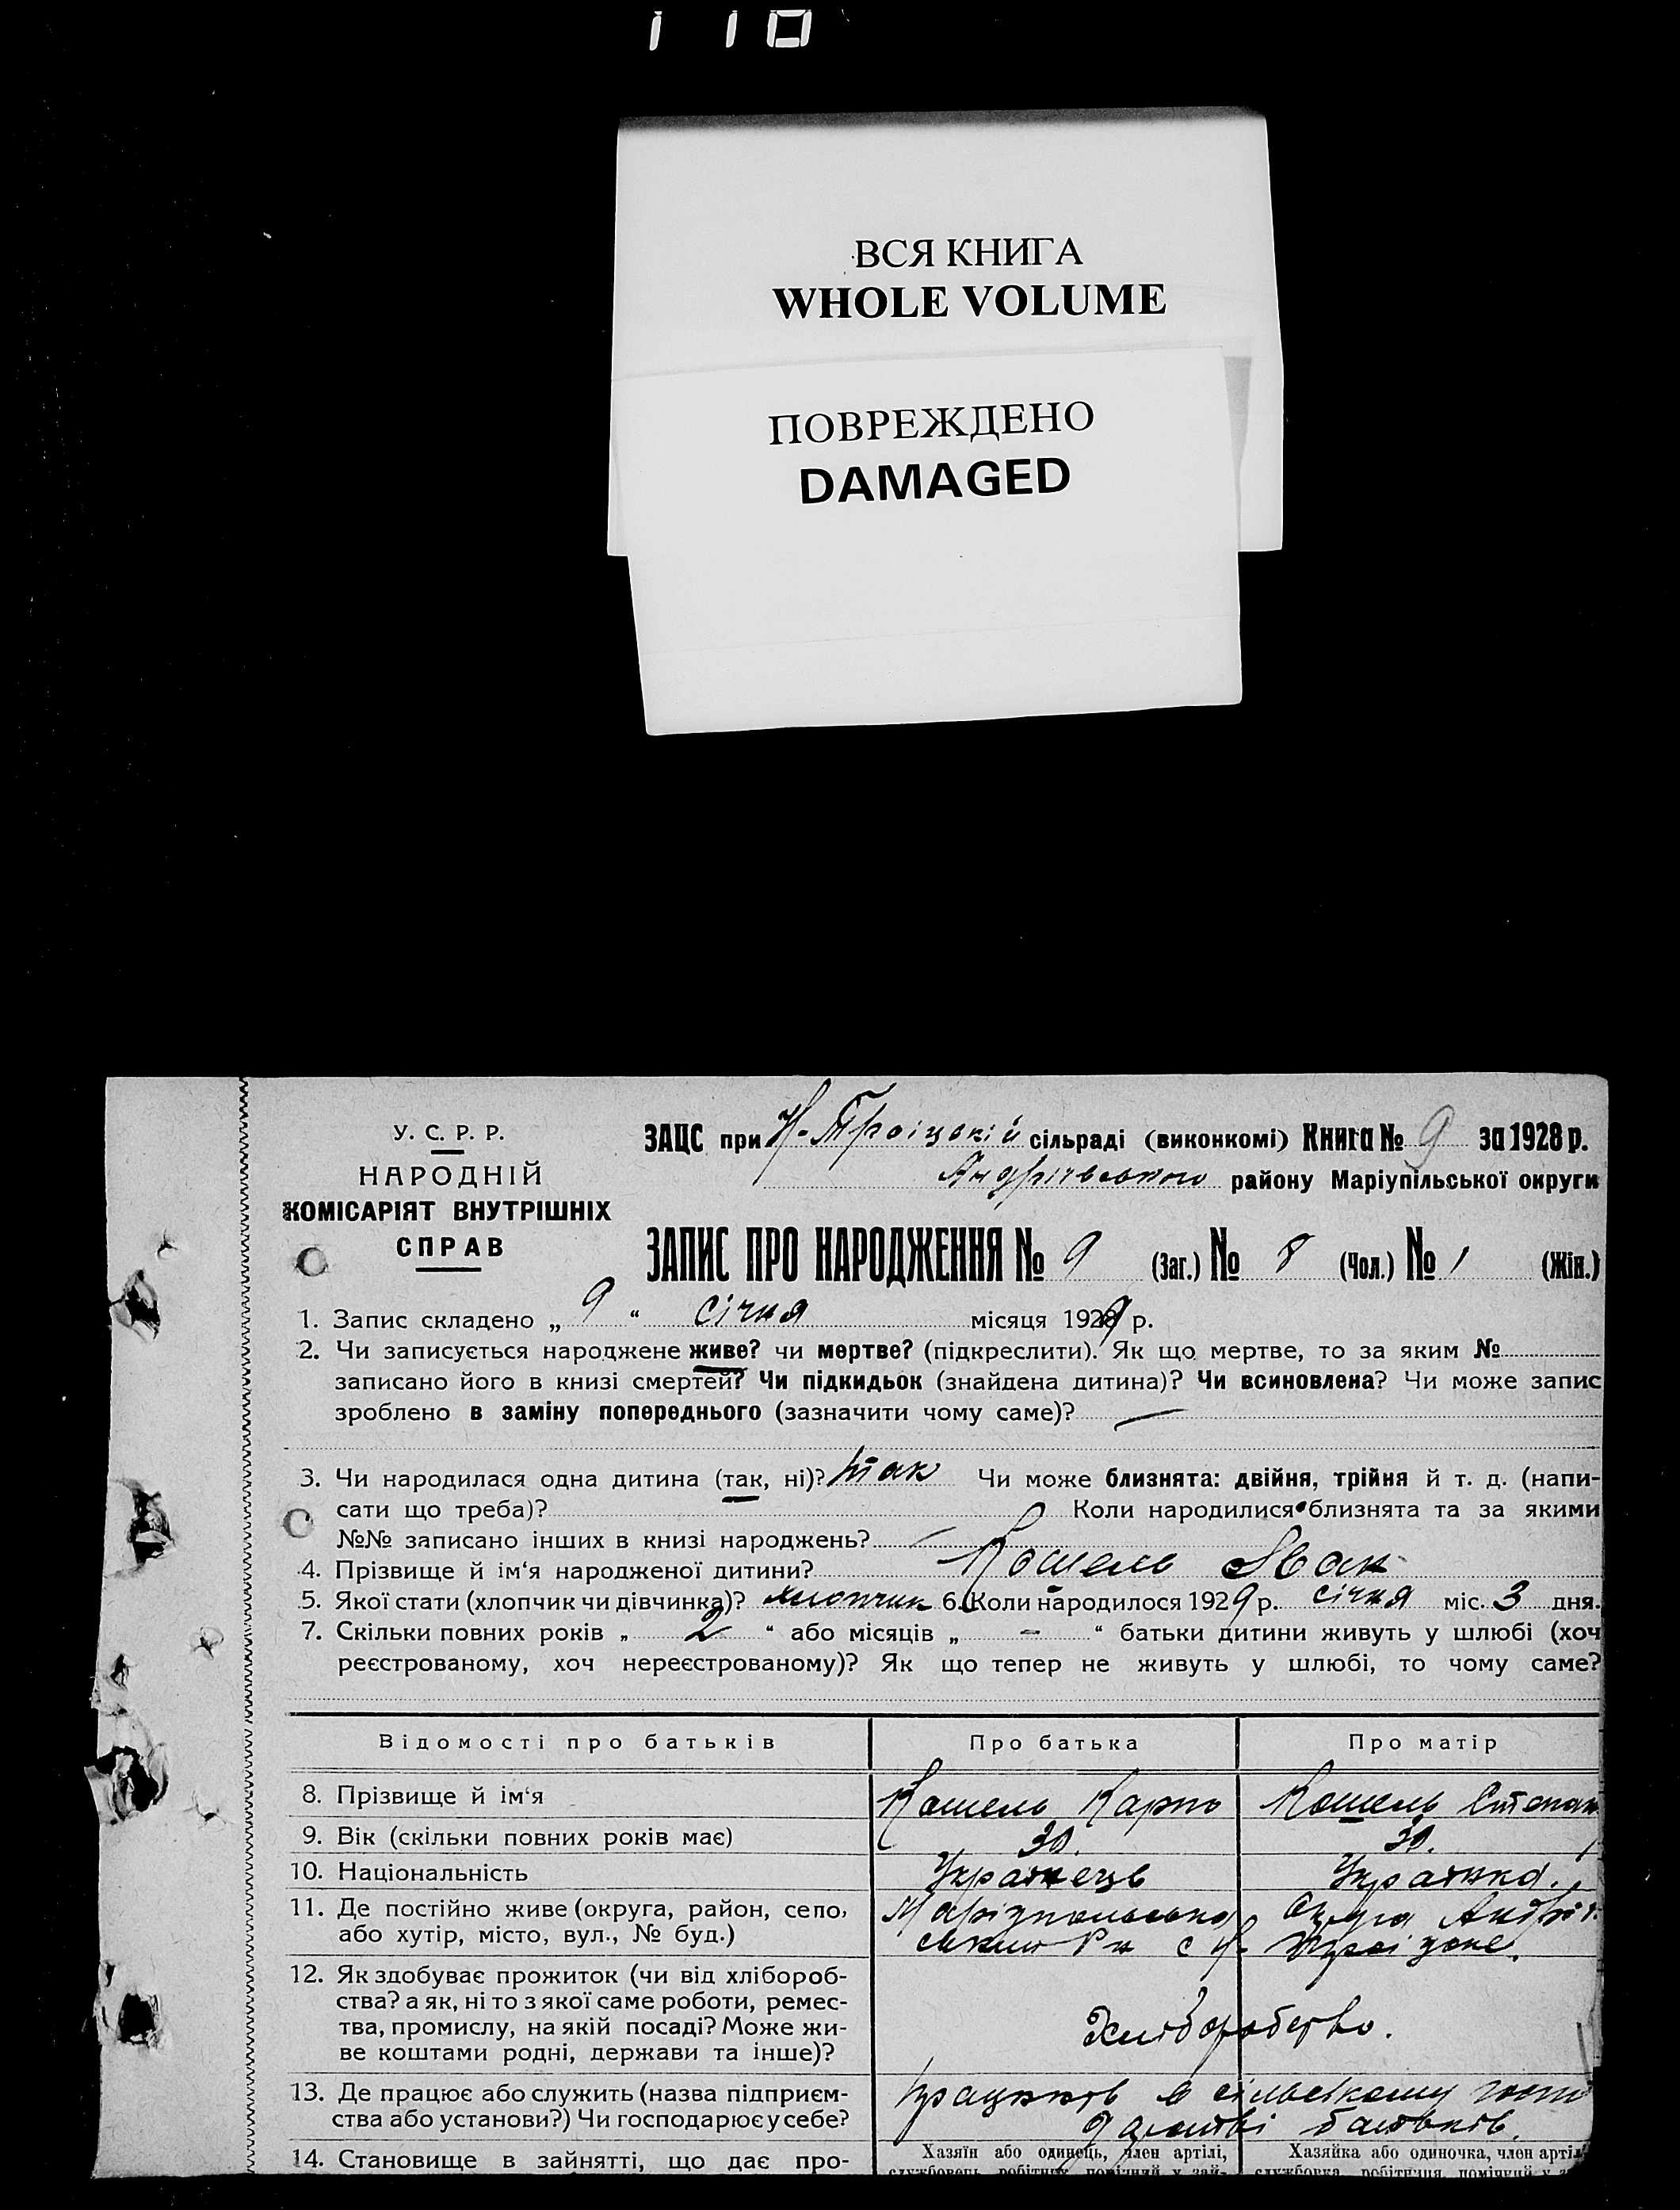 110
ВСЯ КНИГА
WHOLE VOLUME
ПОВРЕЖДЕНО
DAMAGED
У. С. Р. Р.
НАРОДНІЙ
КОМІСАРІЯТ ВНУТРІШНІХ
СПРАВ
ЗАЦС при Н-Троіцькій сільраді (виконкомі) Книга № 9 за 1928 р.
Андріївського району Маріупільської округи
ЗАПИС ПРО НАРОДЖЕННЯ № 9 (Заг.) № 8 (Чол.) № 1 (Жін.)
1. Запис складено „ 9 “ січня місяця 1929 р.
2. Чи записується народжене живе? чи мертве? (підкреслити). Як що мертве, то за яким №
записано його в книзі смертей? Чи підкидьок (знайдена дитина)? Чи всиновлена? Чи може запис
зроблено в заміну попереднього (зазначити чому саме)? —
3. Чи народилася одна дитина (так, ні)? так Чи може близнята: двійня, трійня й т. д. (напи-
сати що треба)? Коли народилися близнята та за якими
№№ записано інших в книзі народжень? —
4. Прізвище й ім‘я народженої дитини? Кошель Іван
5. Якої стати (хлопчик чи дівчинка)? хлопчик 6. Коли народилося 1929 р. січня міс. 3 дня.
7. Скільки повних років „ 2 “ або місяців „ – “ батьки дитини живуть у шлюбі (хоч
реєстрованому, хоч нереєстрованому)? Як що тепер не живуть у шлюбі, то чому саме?
Відомості про батьків Про батька Про матір
8. Прізвище й ім‘я Кошель Карпо Кошель
9. Вік (скільки повних років має) 30. 30.
10. Національність Українець Українка.
11. Де постійно живе (округа, район, село, Маріупольська округа Андрії
або хутір, місто, вул., № буд.) вський Рн с Н- Троіцьке.
12. Як здобуває прожиток (чи від хлібороб-
ства? а як, ні то з якої саме роботи, ремес-
тва, промислу, на якій посаді? Може жи-
ве коштами родні, держави та інше)?
Хліборобство.
13. Де працює або служить (назва підприєм- в сільському
ства або установи?) Чи господарює у себе? батьків.
14. Становище в зайнятті, що дає про- Хазяїн або одинець, член артілі, Хазяйка або одиночка, член артіл
службовець, робітник, помічний у зай- службовка, робітниця, помічний у з